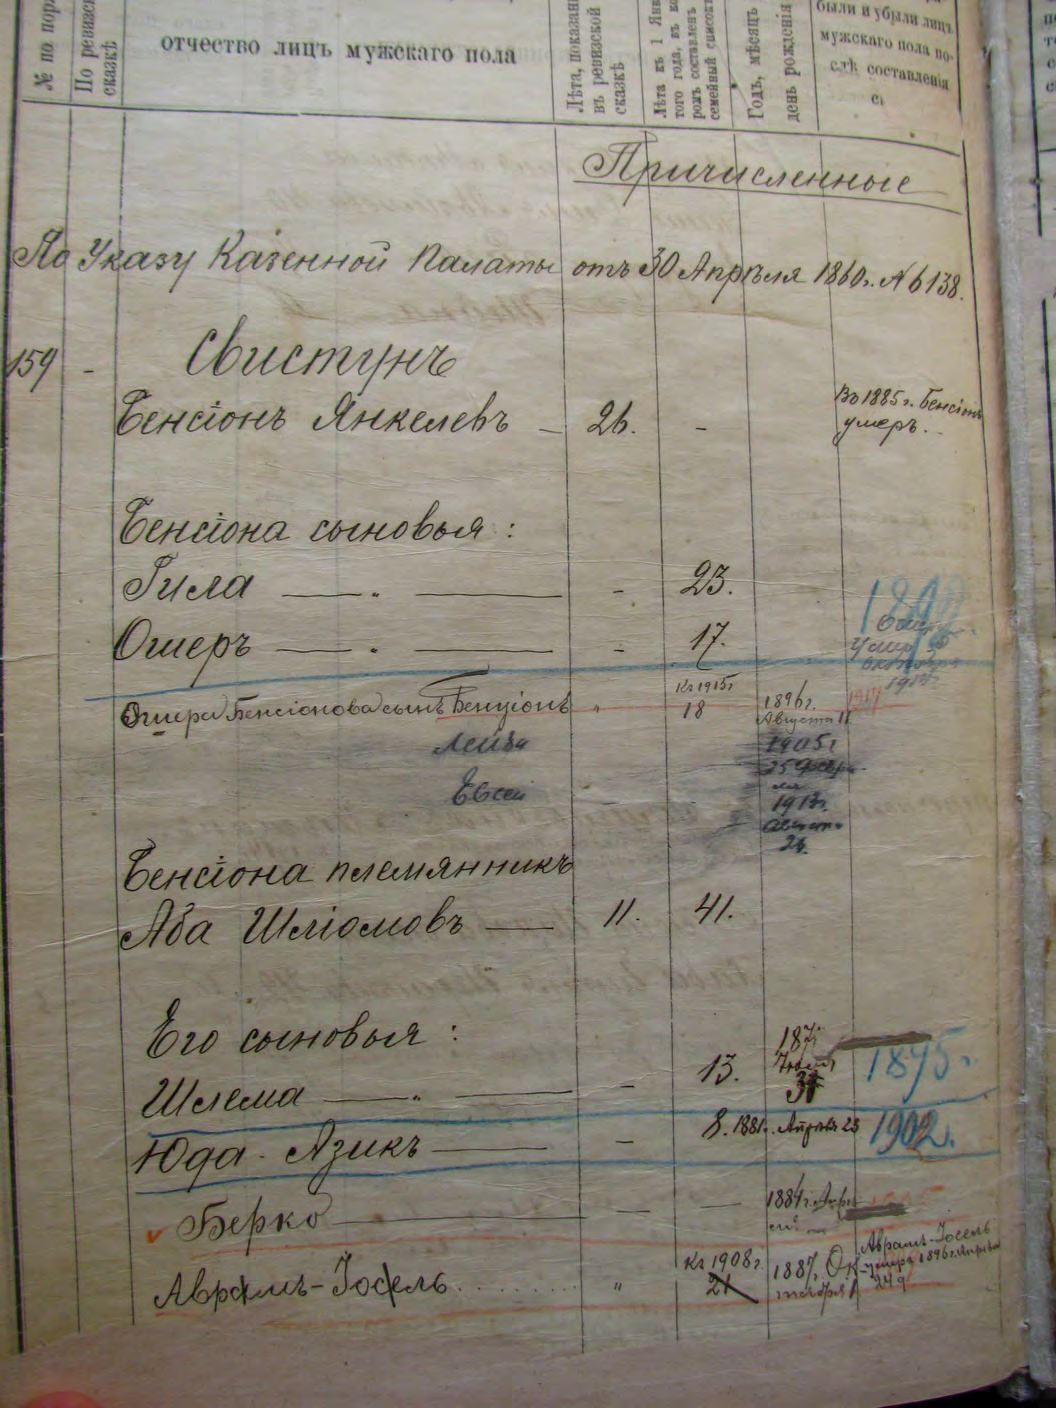 № по пор
По ревизс
сказкѣ
отчество лицъ мужскаго пола
Лѣта, показан
въ ревизской
сказкѣ
Лѣта къ 1 Янв
того года, въ ко
ромъ составленъ
семейный список
Годъ, мѣсяцъ
день рожденія
были и убыли лицъ
мужскаго пола по-
слѣ составленія
Причисленные
По Указу Казенной Палаты отъ 30 Апрѣля 1860г. № 6138.
159 - Свистунъ
Бенсіонъ Янкелевъ - 26. - Въ 1885г. Бенсіонъ
умеръ.
Бенсіона сыновья:
Гила - 23.
Ошеръ - 17.
Умер
октября
Къ 1915г
Ошера Бенсіонова сынъ Бенціонъ " 18 1896г. 1917
Августа 11
Лейба 1905г
25
Евсей 1913г.
Августа
26.
Бенсіона племянникъ
Аба Шліомовъ 11. 41.
Его сыновья:
Шлема - 13. 1875г.
8. 1881г. Апрѣля 23
Юда-Азикъ - 1902.
Берко - - 1884г.
Къ 1908г.
Аврамъ-Іосель " 21 1887г. Октября 1
Аврамъ-Іосель
умеръ 1896г. Апрѣля